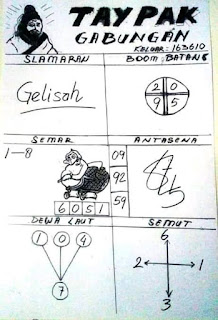 TAYPAK
GABUNGAN
KELUAR: 163610
SLAMARAN
BOOM BATANG
Gelisah
2 0
9 5
SEMAR
ANTASENA
1-8
09
92
59
6051
DEWA LAUT
SEMUT
1 0 4
7
6
2 1
3